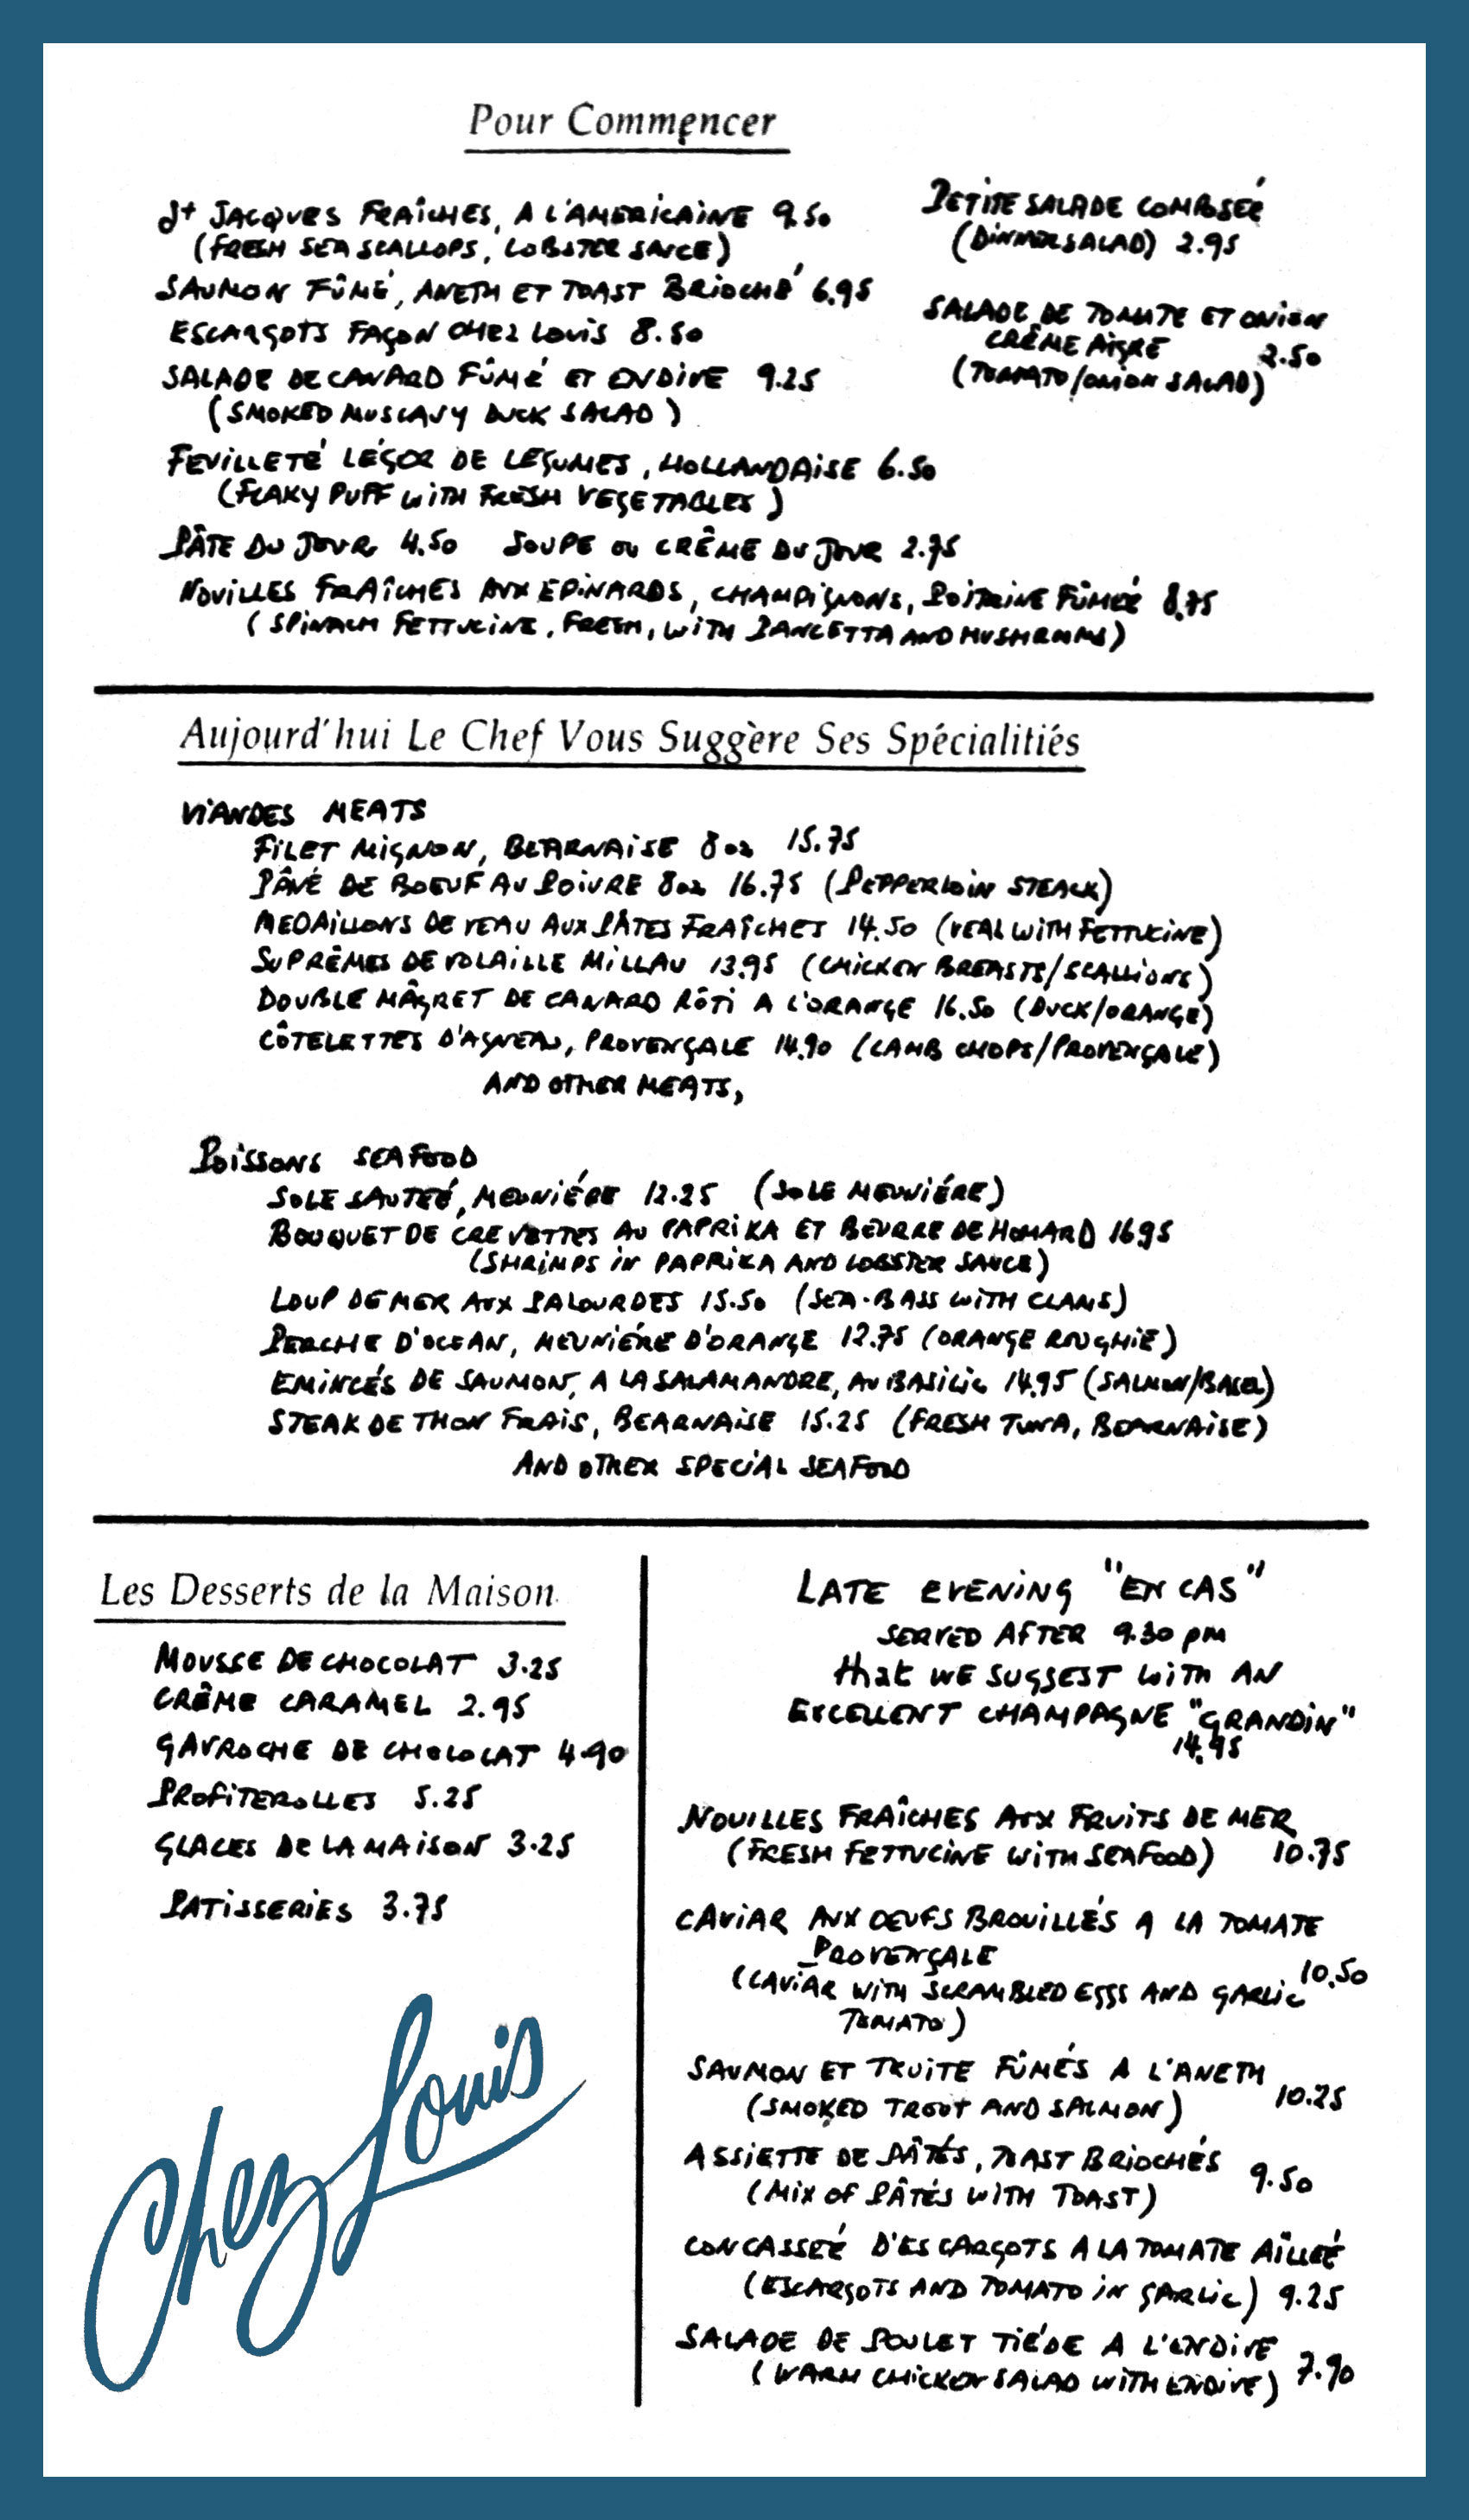 Pour Commencer
St JACQUES FRAÎCHES, A L'AMERICAINE 9.50
(FRESH SEA SCALLOPS, LOBSTER SAUCE)
SAUMON FÛMÉ, ANETH ET TOAST BRIOCHÉ 6.95
ESCARGOTS FAÇON CHEZ LOUIS 8.50
SALADE DE CANARD FÛMÉ ET ENDIVE 9.25
(SMOKED MUSCAVY DUCK SALAD)
FEUILLETÉ LÉGER DE LEGUMES, HOLLANDAISE 6.50
(FLAKY PUFF WITH FRESH VEGETABLES)
PÂTE DU JOUR 4.50 SOUPE OU CRÊME DU JOUR 2.75
NOUILLES FRAÎCHES AUX EPINARDS, CHAMPIGNONS, POITRINE FÛMÉE 8.75
(SPINACH FETTUCINE, FRESH, WITH PANCETTA AND MUSHROOMS)
PETITE SALADE COMPOSÉE
(DINNER SALAD) 2.95
SALADE DE TOMATE ET ONION
CRÊME AIGRE 2.50
(TOMATO/ONION SALAD)
Aujourd'hui Le Chef Vous Suggère Ses Spécialitiés
VIANDES MEATS
FILET MIGNON, BEARNAISE 8 oz 15.75
PÂVÉ DE BOEUF AU POIVRE 8 oz 16.75 (PEPPERLOIN STEACK)
MEDAILLONS DE VEAU AUX PÂTES FRAÎCHES 14.50 (VEAL WITH FETTUCINE)
SUPRÊMES DE VOLAILLE MILLAU 13.95 (CHICKEN BREASTS/SCALLIONS)
DOUBLE MÂGRET DE CANARD RÔTI A L'ORANGE 16.50 (DUCK/ORANGE)
CÔTELETTES D'AGNEAU, PROVENÇALE 14.90 (LAMB CHOPS/PROVENÇALE)
AND OTHER MEATS,
POISSONS SEAFOOD
SOLE SAUTEÉ, MEUNIÉRE 12.25 (SOLE MEUNIÉRE)
BOUQUET DE CREVETTES AU PAPRIKA ET BEURRE DE HOMARD 16.95
(SHRIMPS IN PAPRIKA AND LOBSTER SAUCE)
LOUP DE MER AUX PALOURDES 15.50 (SEA-BASS WITH CLAMS)
PERCHE D'OCEAN, MEUNIÉRE D'ORANGE 12.75 (ORANGE ROUGHIE)
EMINCÉS DE SAUMON, A LA SALAMANDRE, AU BASILIC 14.95 (SALMON/BASIL)
STEAK DE THON FRAIS, BEARNAISE 15.25 (FRESH TUNA, BEARNAISE)
AND OTHER SPECIAL SEAFOOD
Les Desserts de la Maison
MOUSSE DE CHOCOLAT 3.25
CRÊME CARAMEL 2.95
GAVROCHE DE CHOCOLAT 4.90
PROFITEROLLES 5.25
GLACES DE LA MAISON 3.25
PATISSERIES 3.75
Chez Louis
LATE EVENING "EN CAS"
SERVED AFTER 9.30 pm
that WE SUGGEST WITH AN
EXCELLENT CHAMPAGNE "GRANDIN"
14.95
NOUILLES FRAÎCHES AUX FRUITS DE MER
(FRESH FETTUCINE WITH SEAFOOD) 10.75
CAVIAR AUX OEUFS BROUILLÉS A LA TOMATE
PROVENÇALE
(CAVIAR WITH SCRAMBLED EGGS AND GARLIC 10.50
TOMATO)
SAUMON ET TRUITE FÛMÉS A L'ANETH
(SMOKED TROUT AND SALMON) 10.25
ASSIETTE DE PÂTÉS, TOAST BRIOCHÉS
(MIX OF PÂTÉS WITH TOAST) 9.50
CONCASSEÉ D'ESCARGOTS A LA TOMATE AÎLLEÉ
(ESCARGOTS AND TOMATO IN GARLIC) 9.25
SALADE DE POULET TIÉDE A L'ENDIVE
(WARM CHICKEN SALAD WITH ENDIVE) 7.90